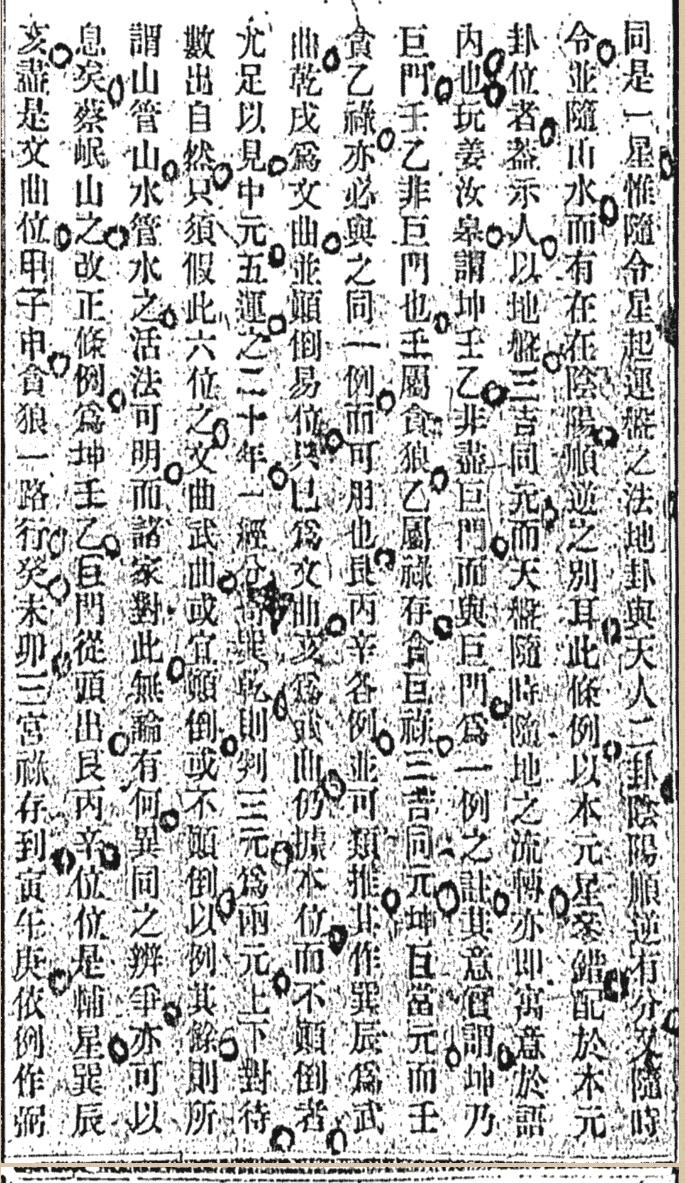 同是一星惟隨令星起運盤之法地卦與天人二卦陰陽順逆有分又隨時
令並隨山水而有在在陰陽順逆之別耳此條例以本元星來錯配於本元
卦位者葢示人以地盤三吉同元而天盤隨時隨地之流轉亦即寓意於語
內也玩姜汝臯謂坤壬乙非盡巨門而與巨門為一例之註其意實謂坤乃
巨門壬乙非巨門也壬屬貪狼乙屬祿存貪巨祿三吉同元坤巨當元而壬
貪乙祿亦必與之同一例而可用也艮丙辛各例並可類推其作巽辰為武
曲乾戌為文曲並顛倒易位與巳為文曲亥為武曲仍據本位而不顛倒者
尤足以見中元五運之二十年一經分巽乾則判三元為兩元上下對待
數出自然只須假此六位之文曲武曲或宜顛倒或不顛倒以例其餘則所
謂山管山水管水之活法可明而諸家對此無論有何異同之辨爭亦可以
息矣蔡岷山之改正條例為坤壬乙巨門從頭出艮丙辛位位是輔星巽辰
亥盡是文曲位甲子申貪狼一路行癸未卯三宮祿存到寅午庚依例作弼